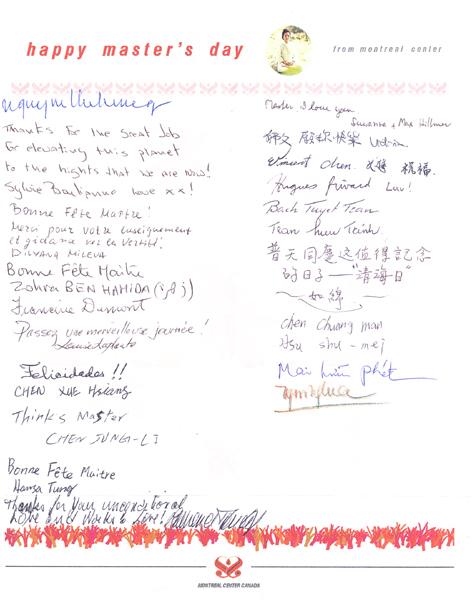 happy master's day
from montreal center
Thanks for the Great Job
for elevating this planet
to the hights that we are now!
Sylvie xx!
Bonne Fête Maître!
Merci pour votre enseignement
et vers la Vérité!
DILYANA MILEVA
Bonne Fête Maître
Zohra BEN HAMIDA
Francine Dumont
Passez une merveilleuse journée!
Felicidades!!
CHEN XUE HSIANG
Thinks Master
CHEN JUNG-LI
Bonne Fête Maître
Hansa Tung
Thanks for your unconditional
Love and
Master I love you
Suzanne & Max Hillmer
師父
Vincent Chen 祝福
Hugues Luv!
Bach Tuyet Tran
Tran Huu Trinh
普天同慶這值得記念
的日子—"清海日"
如綿
chen chuang man
Hsu shu-mei
Mai hữu phát
MONTREAL CENTER CANADA